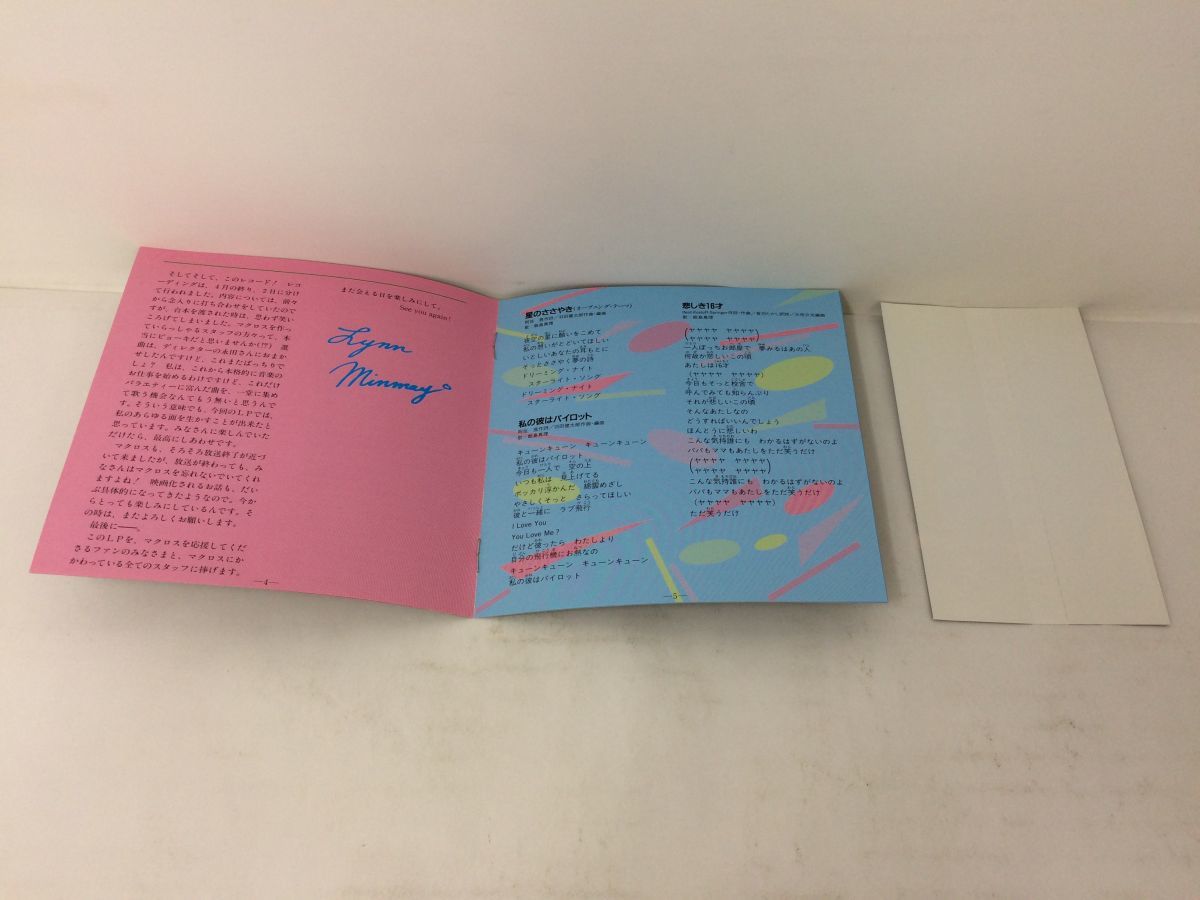 そしてそして、このレコード! レコ
ーディングは、4月の終り、2日に分け
て行われました。内容については、前々
から念入りに打ち合わせをしていたので
すが、台本を渡された時は、思わず笑い
ころげてしまいました。マクロスを作っ
ていらっしゃるスタッフの方々って、本
当にヒョーキだと思いませんか(!?) 選
曲は、ディレクターの太田さんにおまか
せしたんですけど、これまたばっちりで
しょ? 私は、これから本格的に音楽の
お仕事を始めるわけですけど、これだけ
バラエティーに富んだ曲を、一堂に集め
て歌う機会なんてもう無いと思うんで
す。そういう意味でも、今回のLPでは、
私のあらゆる面を生かすことが出来たと
思っています。みなさんに楽しんでいた
だけたら、最高にしあわせです。
マクロスも、そろそろ放送終了が近づ
いて来ましたが、放送が終わっても、み
なさんはマクロスを忘れないでいてくれ
ますよね! 映画化されるお話も、だい
ぶ具体的になってきたようなので、今か
らとっても楽しみにしているんです。そ
の時は、またよろしくお願いします。
最後に——。
このLPを、マクロスを応援してくだ
さるファンのみなさまと、マクロスにか
かわっている全てのスタッフに捧げます。
—4—
また会える日を楽しみにして。
See you again!
Lynn
Minmay
星のささやき(オープニング・テーマ)
阿佐 茜作詞/羽田健太郎作曲・編曲
歌/飯島真理
夜空の星に願いをこめて
私の想いがとどいてほしい
いとしいあなたの耳もとに
そっとささやく夢の詩
ドリーミング・ナイト
スターライト・ソング
ドリーミング・ナイト
スターライト・ソング
私の彼はパイロット
阿佐 茜作詞/羽田健太郎作曲・編曲
歌/飯島真理
キューンキューン キューンキューン
私の彼はパイロット
今日も一人で 空の上
いつも私は 見上げてる
ポッカリ浮かんだ 綿雲めざし
やさしくそっと さらってほしい
彼と一緒に ラブ飛行
I Love You
You Love Me?
だけど彼ったら わたしより
自分の飛行機にお熱なの
キューンキューン キューンキューン
私の彼はパイロット
悲しき16才
歌/飯島真理
(ヤヤヤヤ ヤヤヤヤ)
(ヤヤヤヤ ヤヤヤヤ)
一人ぼっちお部屋で 夢みるはあの人
何故か悲しいこの頃
あたしは16才
(ヤヤヤヤ ヤヤヤヤ)
今日もそっと校舎で
呼んでみても知らんぷり
それが悲しいこの頃
そんなあたしなの
どうすればいいんでしょう
ほんとうに悲しいわ
こんな気持誰にも わかるはずがないのよ
パパもママもあたしをただ笑うだけ
(ヤヤヤヤ ヤヤヤヤ)
(ヤヤヤヤ ヤヤヤヤ)
こんな気持誰にも わかるはずがないのよ
パパもママもあたしをただ笑うだけ
(ヤヤヤヤ ヤヤヤヤ)
ただ笑うだけ
—5—